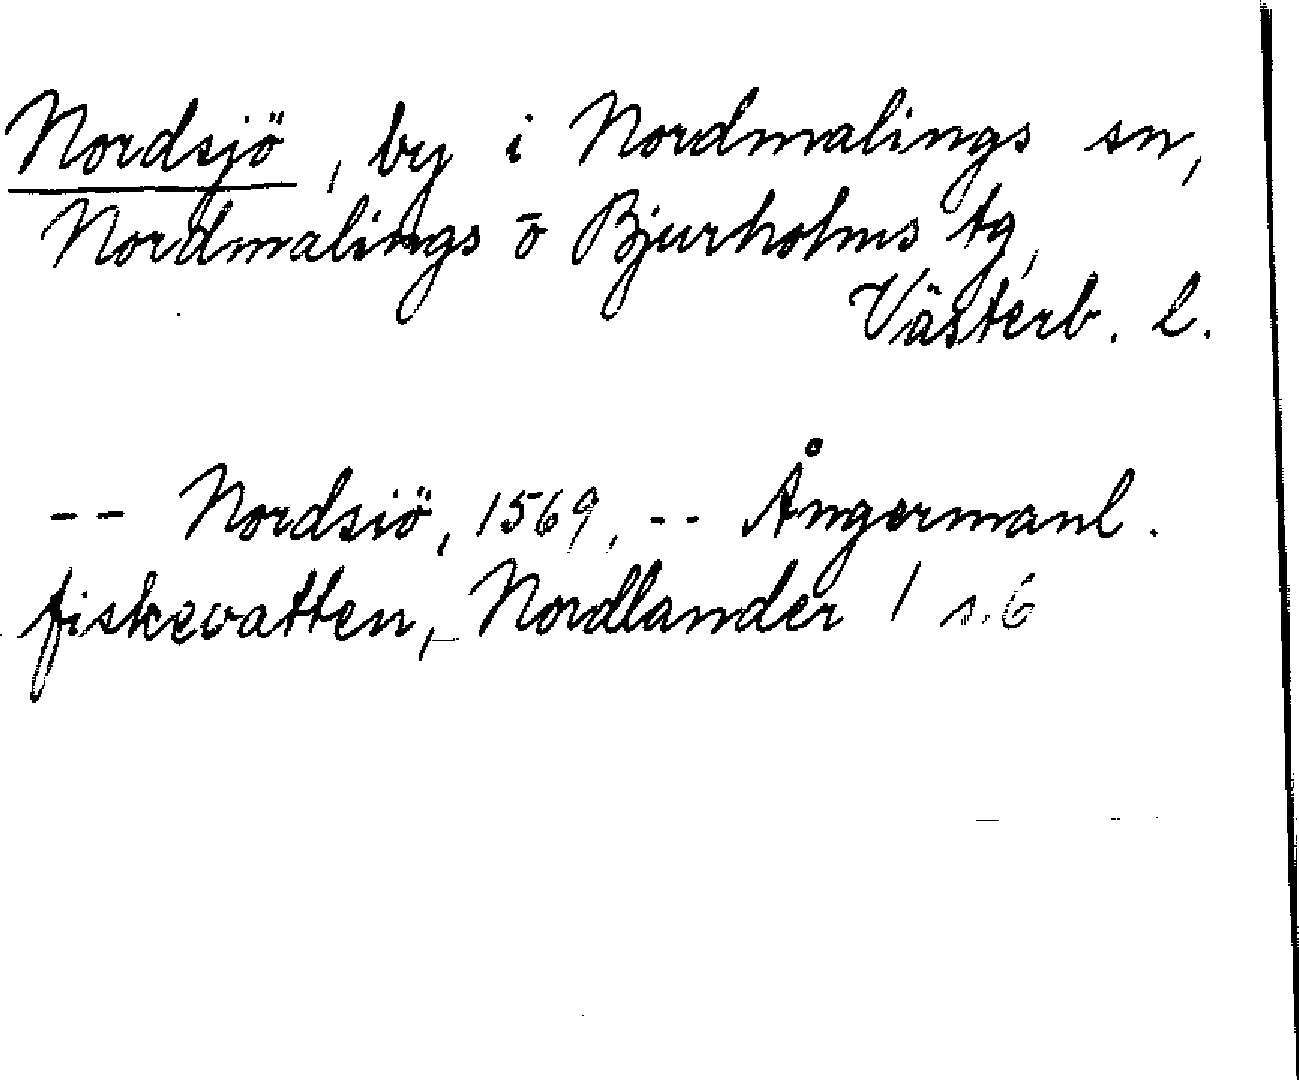 Nordsjö, by i Nordmalings sn,
Nordmalings o Bjurholms tg,
Västerb. l.
-- Nordsiö, 1569, -- Ångermanl.
fiskevatten, Nordlander / s. 6